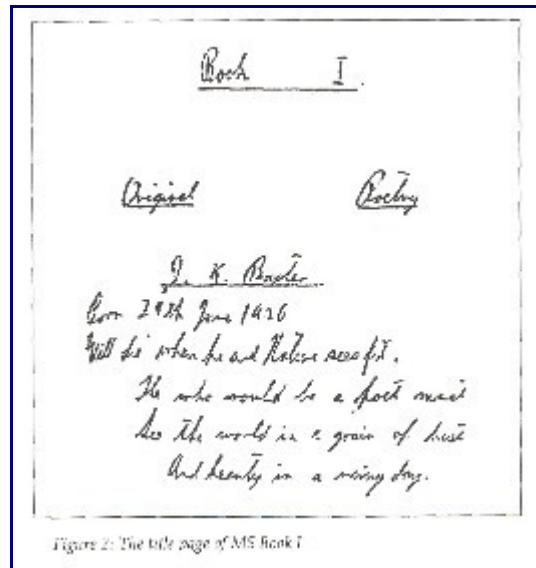 Book I.
Original Poetry
J. K. Baxter
Born 29th June 1926
Will die when he and Nature sees fit.
He who would be a poet must
See the world in a grain of dust
And beauty in a rainy day.
Figure 2: The title page of MS Book I